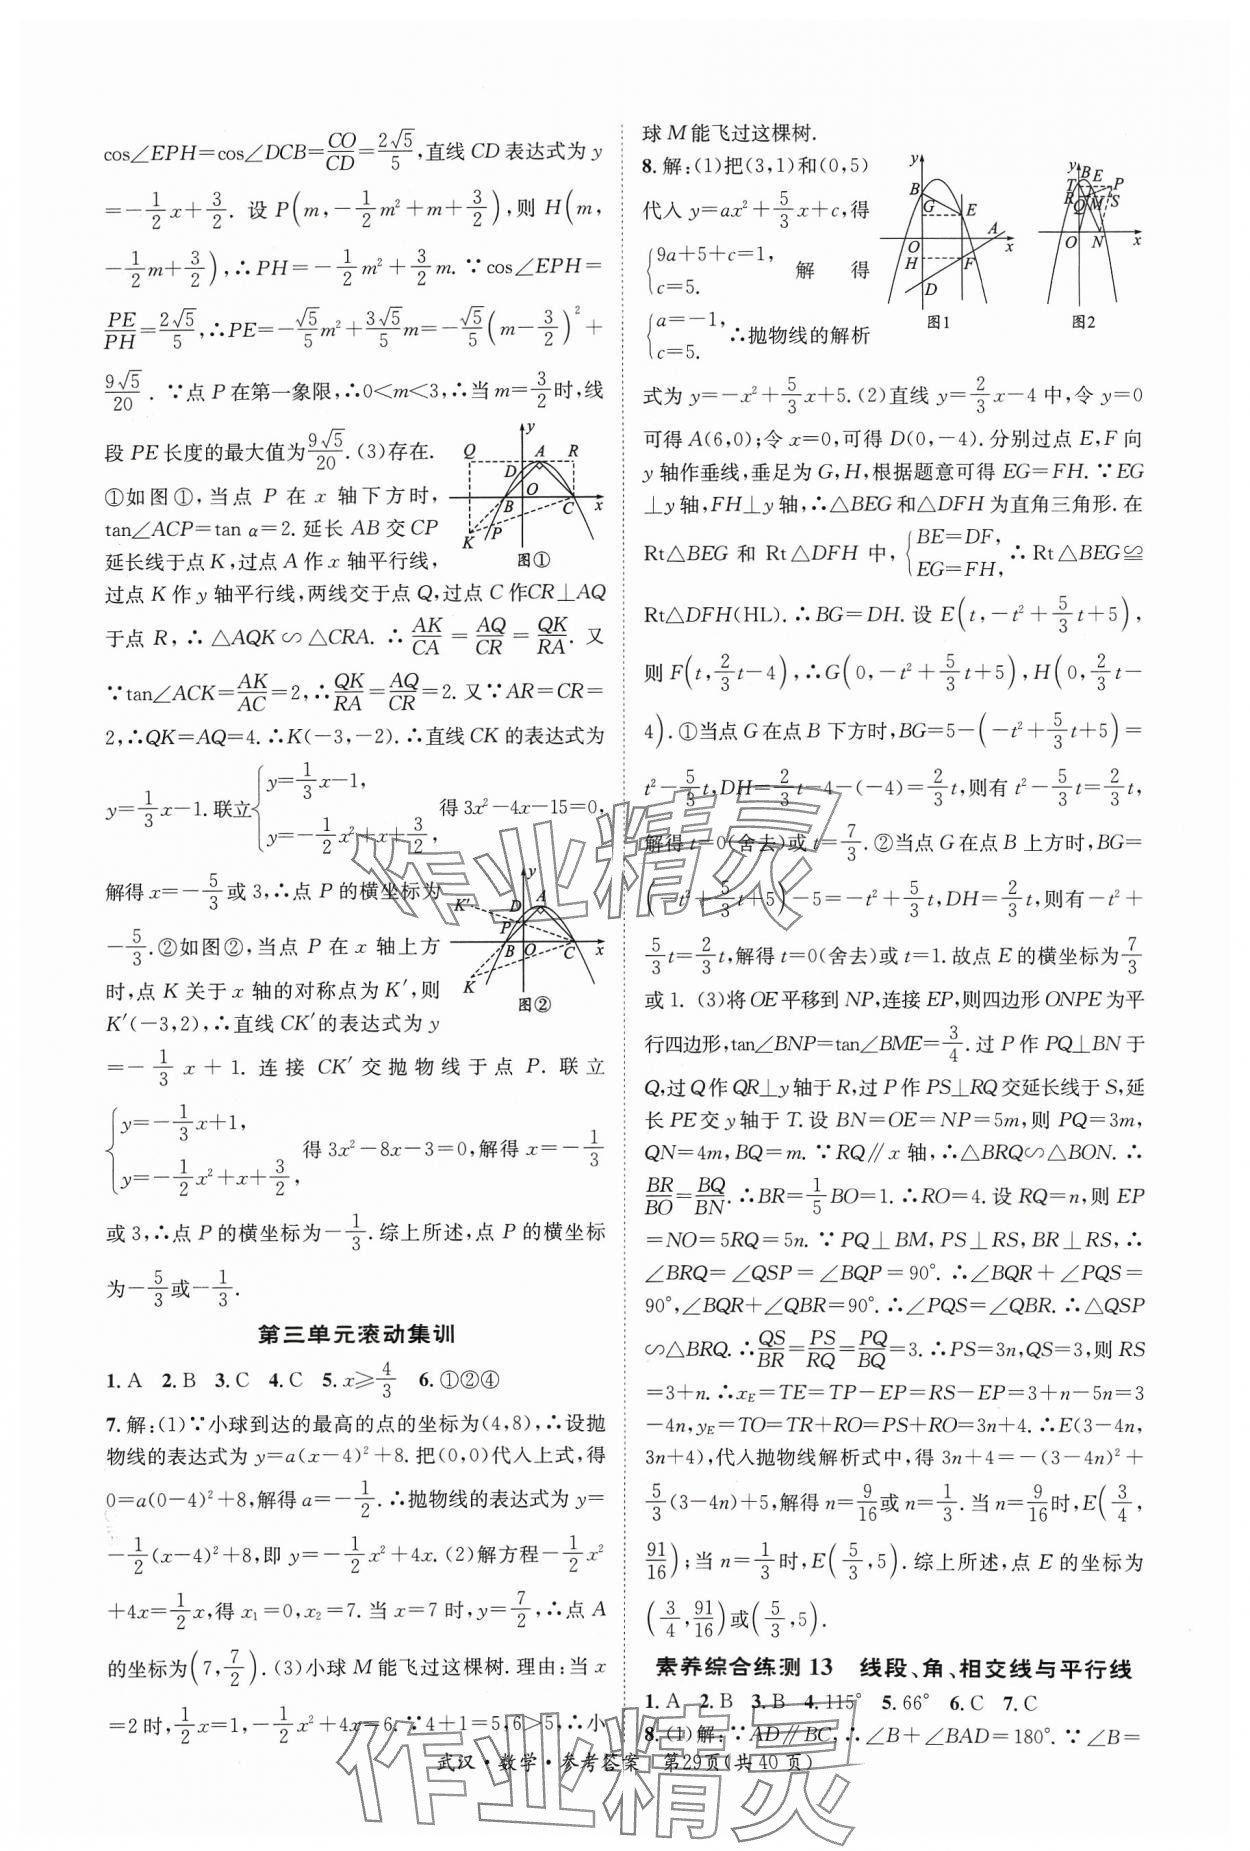 cos∠EPH=cos∠DCB=CO/CD=2√5/5,直线 CD 表达式为 y
=-1/2x+3/2. 设 P(m,-1/2m²+m+3/2),则 H(m,
-1/2m+3/2),∴PH=-1/2m²+3/2m.∵cos∠EPH=
PE/PH=2√5/5,∴PE=-√5/5m²+3√5/5m=-√5/5(m-3/2)²+
9√5/20.∵点 P 在第一象限,∴0<m<3,∴当 m=3/2时,线
段 PE 长度的最大值为9√5/20.(3)存在.
①如图①,当点 P 在 x 轴下方时,
tan∠ACP=tan α=2. 延长 AB 交 CP
延长线于点 K,过点 A 作 x 轴平行线,
图①
过点 K 作 y 轴平行线,两线交于点 Q,过点 C 作CR⊥AQ
于点 R,∴△AQK∽△CRA.∴AK/CA=AQ/CR=QK/RA. 又
∵tan∠ACK=AK/AC=2,∴QK/RA=AQ/CR=2. 又∵AR=CR=
2,∴QK=AQ=4.∴K(-3,-2).∴直线 CK 的表达式为
y=1/3x-1. 联立{y=1/3x-1, y=-1/2x²+x+3/2, 得 3x²-4x-15=0,
解得 x=-5/3或 3,∴点 P 的横坐标为
-5/3.②如图②,当点 P 在 x 轴上方
时,点 K 关于 x 轴的对称点为 K′,则
K′(-3,2),∴直线 CK′的表达式为 y
图②
=-1/3x+1. 连接 CK′交抛物线于点 P. 联立
{y=-1/3x+1, y=-1/2x²+x+3/2, 得 3x²-8x-3=0,解得 x=-1/3
或 3,∴点 P 的横坐标为-1/3.综上所述,点 P 的横坐标
为-5/3或-1/3.
第三单元滚动集训
1. A 2. B 3. C 4. C 5. x≥4/3 6. ①②④
7. 解:(1)∵小球到达的最高的点的坐标为(4,8),∴设抛
物线的表达式为 y=a(x-4)²+8. 把(0,0)代入上式,得
0=a(0-4)²+8,解得 a=-1/2.∴抛物线的表达式为 y=
-1/2(x-4)²+8,即 y=-1/2x²+4x.(2)解方程-1/2x²
+4x=1/2x,得 x₁=0,x₂=7. 当 x=7 时,y=7/2,∴点 A
的坐标为(7,7/2).(3)小球 M 能飞过这棵树. 理由:当 x
=2 时,1/2x=1,-1/2x²+4x=6.∵4+1=5,6>5,∴小
球 M 能飞过这棵树.
8. 解:(1)把(3,1)和(0,5)
代入 y=ax²+5/3x+c,得
{9a+5+c=1, c=5. 解得
{a=-1, c=5. ∴抛物线的解析
图1 图2
式为 y=-x²+5/3x+5.(2)直线 y=2/3x-4 中,令 y=0
可得 A(6,0);令 x=0,可得 D(0,-4). 分别过点 E,F 向
y 轴作垂线,垂足为 G,H,根据题意可得 EG=FH.∵EG
⊥y 轴,FH⊥y 轴,∴△BEG和△DFH 为直角三角形. 在
Rt△BEG 和 Rt△DFH 中,{BE=DF, EG=FH, ∴Rt△BEG≌
Rt△DFH(HL).∴BG=DH. 设 E(t,-t²+5/3t+5),
则 F(t,2/3t-4),∴G(0,-t²+5/3t+5),H(0,2/3t-
4).①当点 G 在点 B 下方时,BG=5-(-t²+5/3t+5)=
t²-5/3t,DH=2/3t-4-(-4)=2/3t,则有 t²-5/3t=2/3t,
解得 t=0(舍去)或 t=7/3.②当点 G 在点 B 上方时,BG=
(-t²+5/3t+5)-5=-t²+5/3t,DH=2/3t,则有-t²+
5/3t=2/3t,解得 t=0(舍去)或 t=1. 故点 E 的横坐标为7/3
或 1.(3)将 OE 平移到 NP,连接 EP,则四边形 ONPE 为平
行四边形,tan∠BNP=tan∠BME=3/4. 过 P 作 PQ⊥BN 于
Q,过 Q 作 QR⊥y 轴于 R,过 P 作 PS⊥RQ 交延长线于 S,延
长 PE 交 y 轴于 T. 设 BN=OE=NP=5m,则 PQ=3m,
QN=4m,BQ=m.∵RQ∥x 轴,∴△BRQ∽△BON.∴
BR/BO=BQ/BN.∴BR=1/5BO=1.∴RO=4. 设 RQ=n,则 EP
=NO=5RQ=5n.∵PQ⊥BM,PS⊥RS,BR⊥RS,∴
∠BRQ=∠QSP=∠BQP=90°.∴∠BQR+∠PQS=
90°,∠BQR+∠QBR=90°.∴∠PQS=∠QBR.∴△QSP
∽△BRQ.∴QS/BR=PS/RQ=PQ/BQ=3.∴PS=3n,QS=3,则 RS
=3+n.∴x_E=TE=TP-EP=RS-EP=3+n-5n=3
-4n,y_E=TO=TR+RO=PS+RO=3n+4.∴E(3-4n,
3n+4),代入抛物线解析式中,得 3n+4=-(3-4n)²+
5/3(3-4n)+5,解得 n=9/16或 n=1/3. 当 n=9/16时,E(3/4,
91/16);当 n=1/3时,E(5/3,5). 综上所述,点 E 的坐标为
(3/4,91/16)或(5/3,5).
素养综合练测 13 线段、角、相交线与平行线
1. A 2. B 3. B 4. 115° 5. 66° 6. C 7. C
8. (1)解:∵AD∥BC,∴∠B+∠BAD=180°.∵∠B=
武汉·数学·参考答案 第29页(共 40 页)
作业精灵
作业精灵